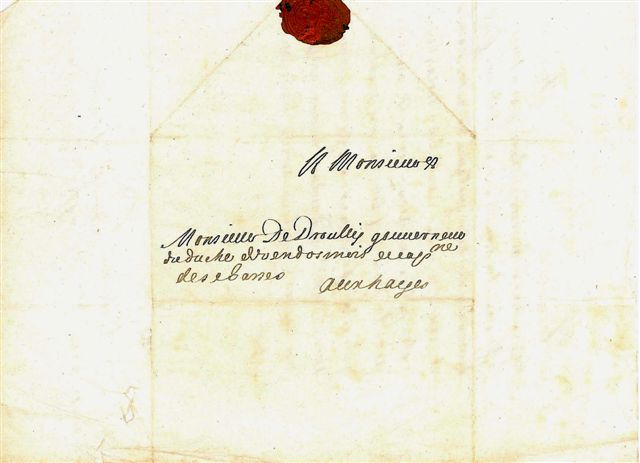 A Monsieur
Monsieur De Droullis gouverneur
du duche de vendosmois et cap^ne
des
aux hayes